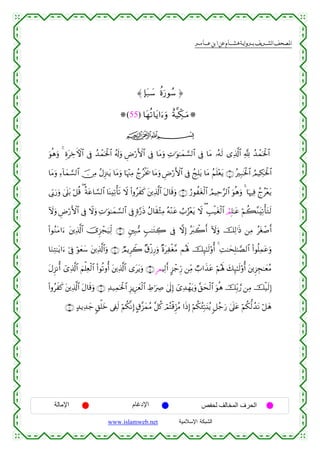 المصحف الشريف برواية هشام عن ابن عامر
﴿ سُورَةُ سَبَإٍ ﴾
* مَكِّيَّةٌ وَءَايَاتُهَا (55) *
بِسْمِ اللَّهِ الرَّحْمَٰنِ الرَّحِيمِ
ٱلْحَمْدُ لِلَّهِ ٱلَّذِى لَهُۥ مَا فِى ٱلسَّمَٰوَٰتِ وَمَا فِى ٱلْأَرْضِ وَلَهُ ٱلْحَمْدُ فِى ٱلْأَخِرَةِ ۚ وَهُوَ
ٱلْحَكِيمُ ٱلْخَبِيرُ ۝١ يَعْلَمُ مَا يَلِجُ فِى ٱلْأَرْضِ وَمَا يَخْرُجُ مِنْهَا وَمَا يَنزِلُ مِنَ ٱلسَّمَآءِ وَمَا
يَعْرُجُ فِيهَا ۚ وَهُوَ ٱلرَّحِيمُ ٱلْغَفُورُ ۝٢ وَقَالَ ٱلَّذِينَ كَفَرُوا۟ لَا تَأْتِينَا ٱلسَّاعَةُ ۖ قُلْ بَلَىٰ وَرَبِّى
لَتَأْتِيَنَّكُمْ عَٰلِمُ ٱلْغَيْبِ ۖ لَا يَعْزُبُ عَنْهُ مِثْقَالُ ذَرَّةٍ فِى ٱلسَّمَٰوَٰتِ وَلَا فِى ٱلْأَرْضِ وَلَآ
أَصْغَرُ مِن ذَٰلِكَ وَلَآ أَكْبَرُ إِلَّا فِى كِتَٰبٍ مُّبِينٍ ۝٣ لِّيَجْزِىَ ٱلَّذِينَ ءَامَنُوا۟
وَعَمِلُوا۟ ٱلصَّٰلِحَٰتِ ۚ أُو۟لَٰٓئِكَ لَهُم مَّغْفِرَةٌ وَرِزْقٌ كَرِيمٌ ۝٤ وَٱلَّذِينَ سَعَوْ فِىٓ ءَايَٰتِنَا
مُعَٰجِزِينَ أُو۟لَٰٓئِكَ لَهُمْ عَذَابٌ مِّن رِّجْزٍ أَلِيمٍ ۝٥ وَيَرَى ٱلَّذِينَ أُوتُوا۟ ٱلْعِلْمَ ٱلَّذِىٓ أُنزِلَ
إِلَيْكَ مِن رَّبِّكَ هُوَ ٱلْحَقَّ وَيَهْدِىٓ إِلَىٰ صِرَٰطِ ٱلْعَزِيزِ ٱلْحَمِيدِ ۝٦ وَقَالَ ٱلَّذِينَ كَفَرُوا۟
هَلْ نَدُلُّكُمْ عَلَىٰ رَجُلٍ يُنَبِّئُكُمْ إِذَا مُزِّقْتُمْ كُلَّ مُمَزَّقٍ إِنَّكُمْ لَفِى خَلْقٍ جَدِيدٍ ۝٧
الحرف المخالف لحفص الإدغام الإمالة
الشبكة الإسلامية www.islamweb.net